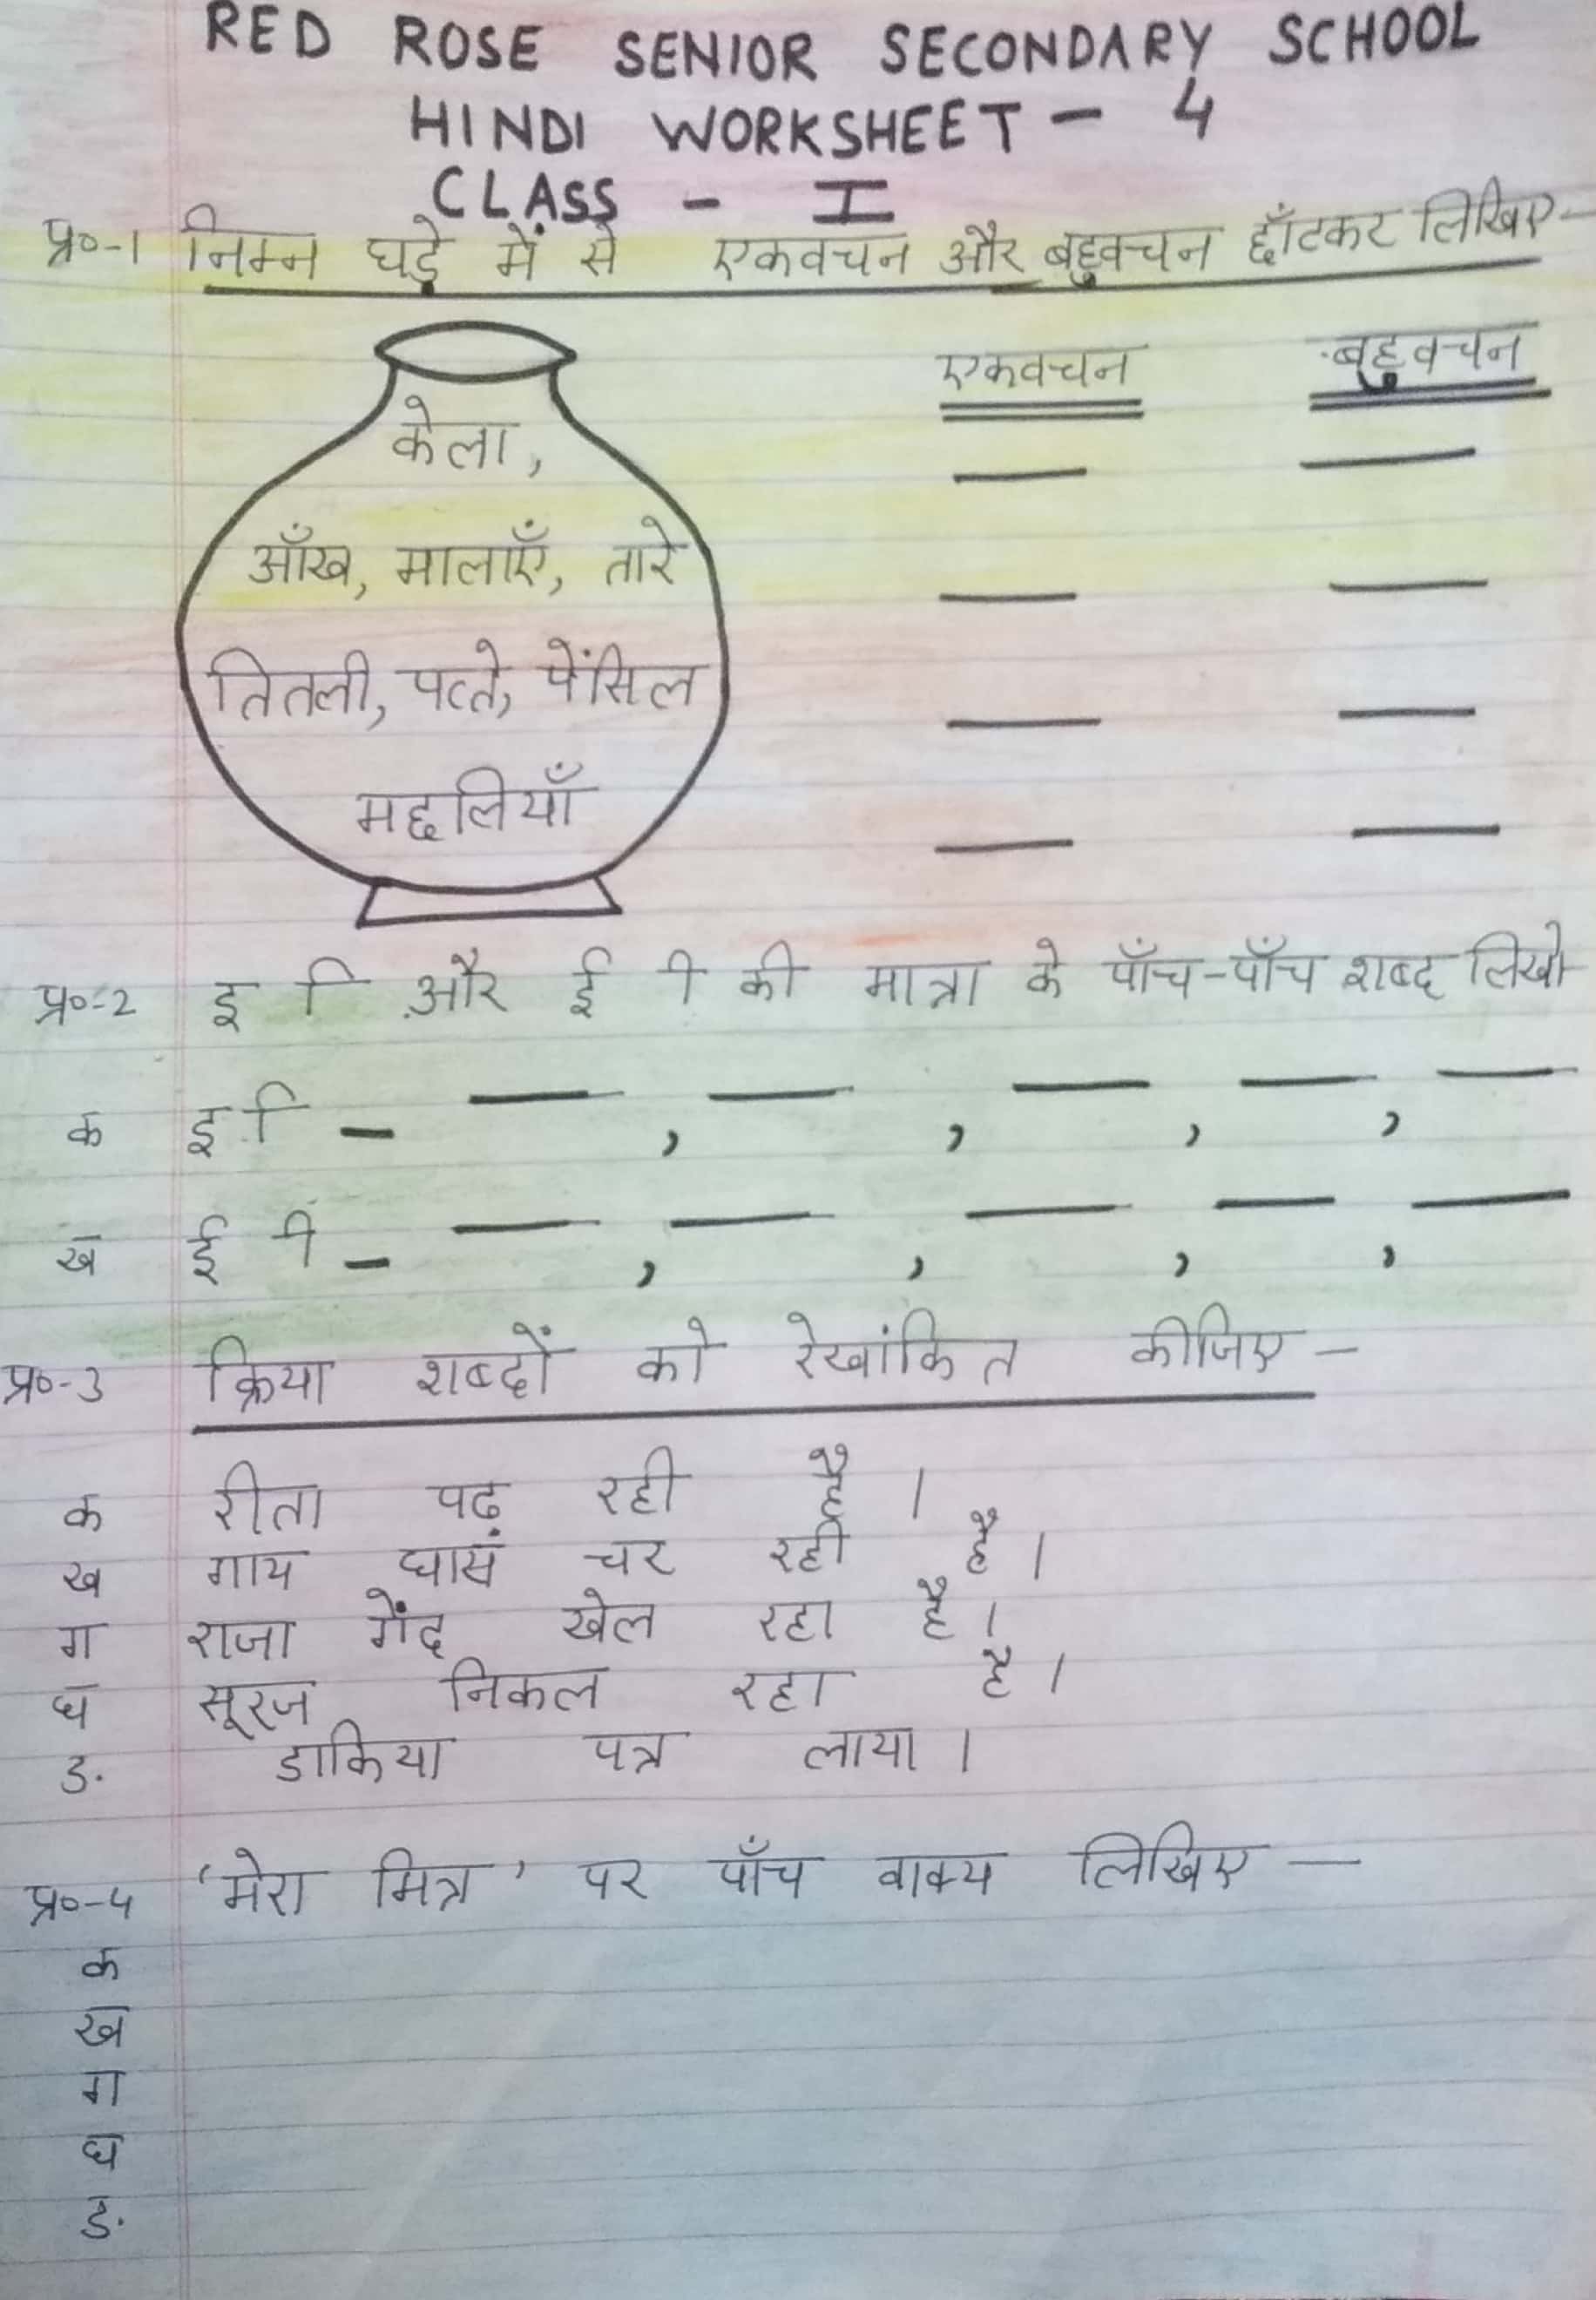 RED ROSE SENIOR SECONDARY SCHOOL
HINDI WORKSHEET - 4
CLASS - I
प्र०-1 निम्न घड़े में से एकवचन और बहुवचन छाँटकर लिखिए-
एकवचन बहुवचन
केला,
आँख, मालाएँ, तारे
तितली, पत्ते, पेंसिल
मछलियाँ
प्र०-2 इ ि और ई ी की मात्रा के पाँच-पाँच शब्द लिखो
क इ ि - — , — , — , — , —
ख ई ी - — , — , — , — , —
प्र०-3 क्रिया शब्दों को रेखांकित कीजिए -
क रीता पढ रही है ।
ख गाय घासं चर रही है ।
ग राजा गेंद खेल रहा है ।
घ सूरज निकल रहा है ।
ङ डाकिया पत्र लाया ।
प्र०-4 'मेरा मित्र' पर पाँच वाक्य लिखिए -
क
ख
ग
घ
ङ